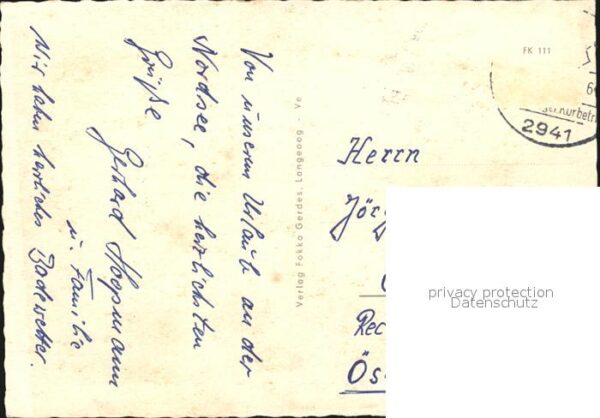 Von unserem Urlaub an der
Nordsee, die herzlichsten
Grüße
Gerhard
u. Familie
Wir haben herrliches Badewetter.
Verlag Fokko Gerdes, Langeoog - Ve
FK 111
2941
Herrn
Jörg
Rec
Ös
privacy protection
Datenschutz